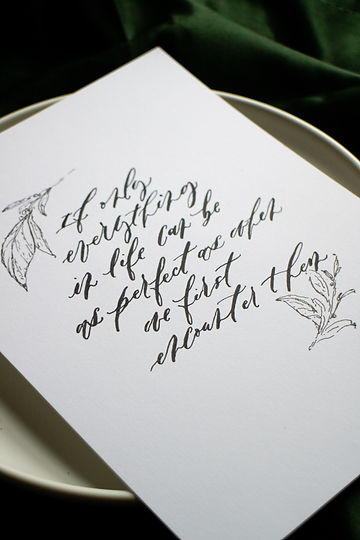 If only
everything
in life can be
as perfect as when
we first
encounter them